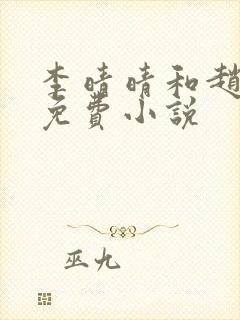 李晴晴和趙
免費小說
巫九